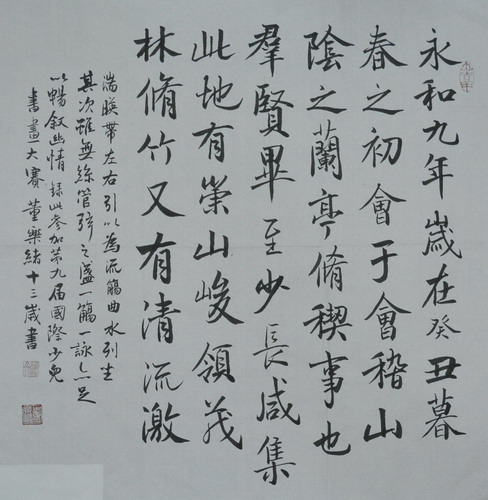 永和九年歲在癸丑暮
春之初會于會稽山
陰之蘭亭脩稧事也
羣賢畢至少長咸集
此地有崇山峻領茂
林脩竹又有清流激
湍暎帶左右引以為流觴曲水列坐
其次雖無絲管弦之盛一觴一詠亦足
以暢敘幽情 錄此參加第九届國際少兒
書畫大賽 董樂緒十三歲書